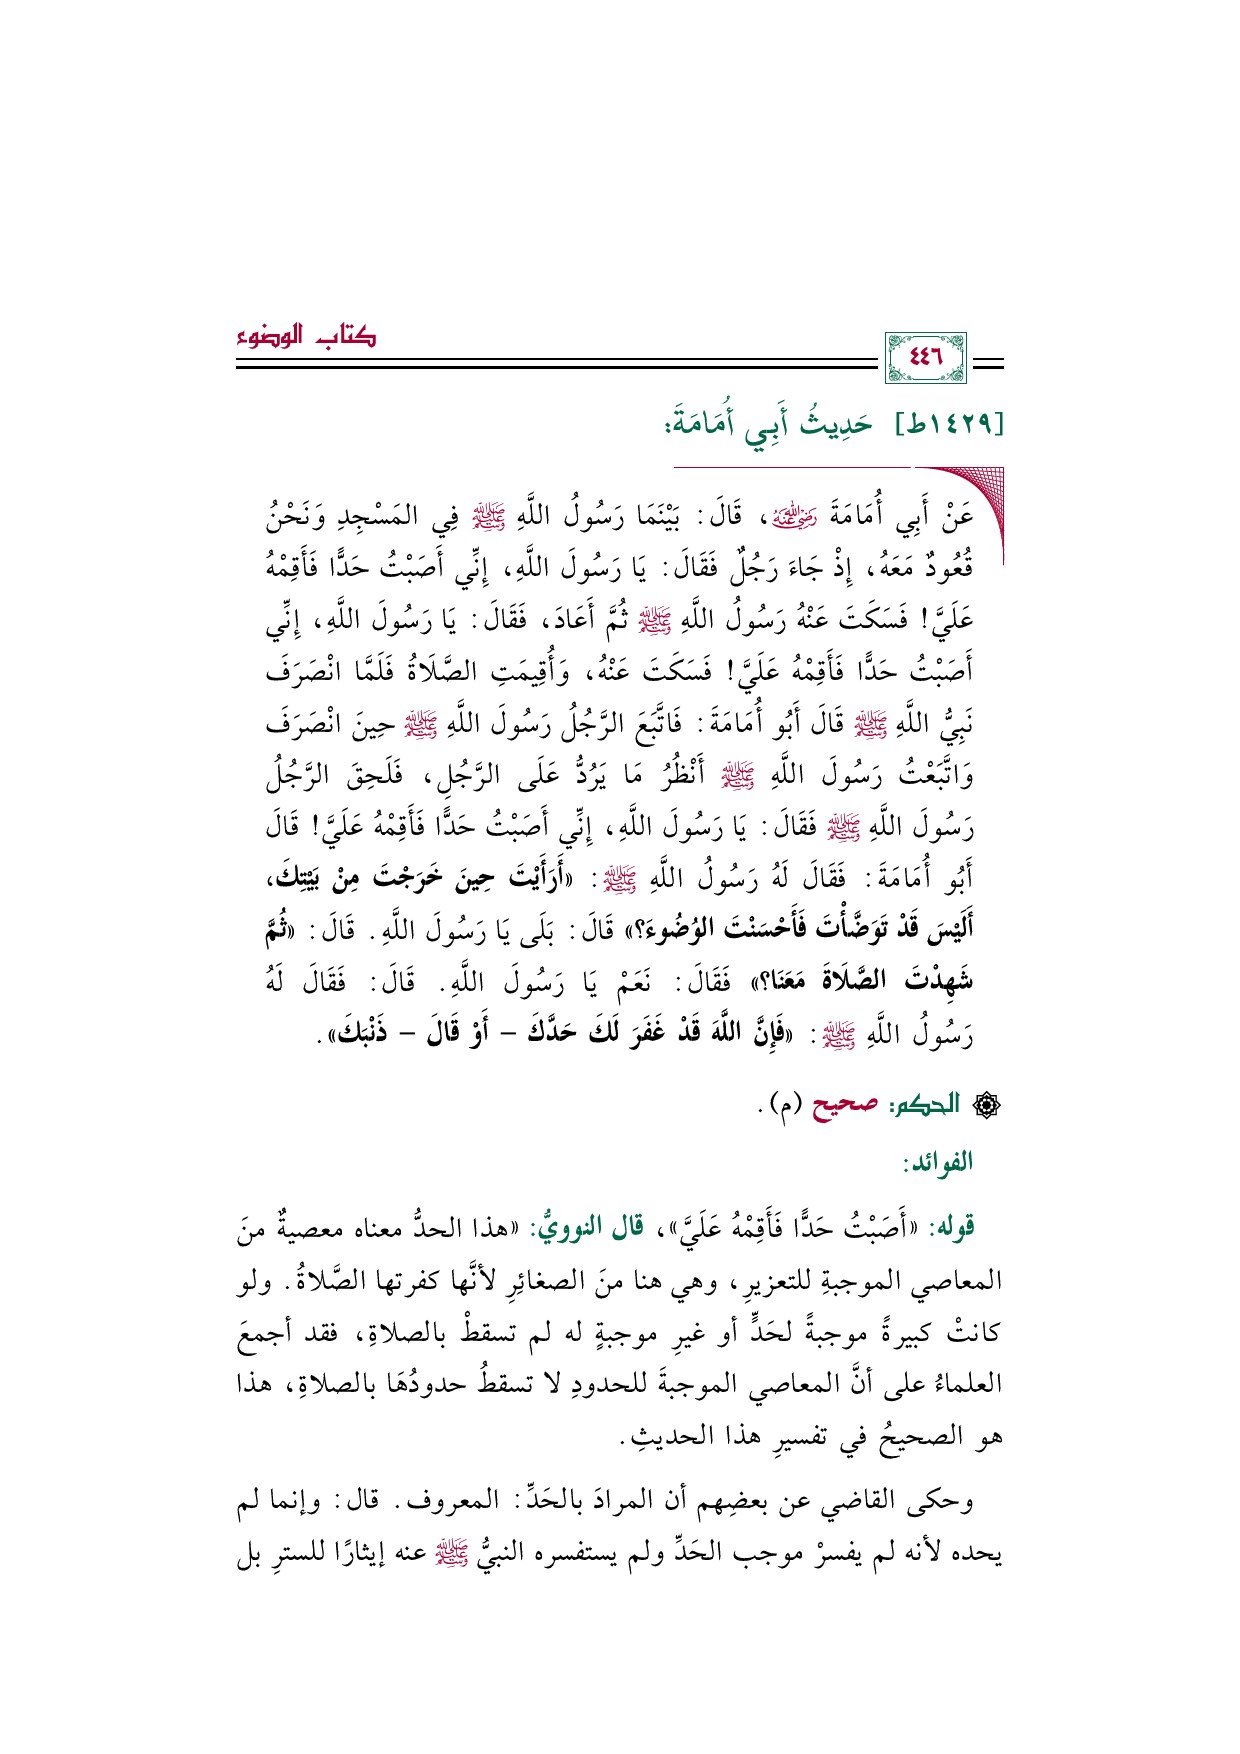 كتاب الوضوء
٤٤٦
[١٤٢٩ط] حَدِيثُ أَبِي أُمَامَةَ:
عَنْ أَبِي أُمَامَةَ رضي الله عنه، قَالَ: بَيْنَمَا رَسُولُ اللَّهِ ﷺ فِي المَسْجِدِ وَنَحْنُ
قُعُودٌ مَعَهُ، إِذْ جَاءَ رَجُلٌ فَقَالَ: يَا رَسُولَ اللَّهِ، إِنِّي أَصَبْتُ حَدًّا فَأَقِمْهُ
عَلَيَّ! فَسَكَتَ عَنْهُ رَسُولُ اللَّهِ ﷺ ثُمَّ أَعَادَ، فَقَالَ: يَا رَسُولَ اللَّهِ، إِنِّي
أَصَبْتُ حَدًّا فَأَقِمْهُ عَلَيَّ! فَسَكَتَ عَنْهُ، وَأُقِيمَتِ الصَّلَاةُ فَلَمَّا انْصَرَفَ
نَبِيُّ اللَّهِ ﷺ قَالَ أَبُو أُمَامَةَ: فَاتَّبَعَ الرَّجُلُ رَسُولَ اللَّهِ ﷺ حِينَ انْصَرَفَ
وَاتَّبَعْتُ رَسُولَ اللَّهِ ﷺ أَنْظُرُ مَا يَرُدُّ عَلَى الرَّجُلِ، فَلَحِقَ الرَّجُلُ
رَسُولَ اللَّهِ ﷺ فَقَالَ: يَا رَسُولَ اللَّهِ، إِنِّي أَصَبْتُ حَدًّا فَأَقِمْهُ عَلَيَّ! قَالَ
أَبُو أُمَامَةَ: فَقَالَ لَهُ رَسُولُ اللَّهِ ﷺ: «أَرَأَيْتَ حِينَ خَرَجْتَ مِنْ بَيْتِكَ،
أَلَيْسَ قَدْ تَوَضَّأْتَ فَأَحْسَنْتَ الوُضُوءَ؟» قَالَ: بَلَى يَا رَسُولَ اللَّهِ. قَالَ: «ثُمَّ
شَهِدْتَ الصَّلَاةَ مَعَنَا؟» فَقَالَ: نَعَمْ يَا رَسُولَ اللَّهِ. قَالَ: فَقَالَ لَهُ
رَسُولُ اللَّهِ ﷺ: «فَإِنَّ اللَّهَ قَدْ غَفَرَ لَكَ حَدَّكَ – أَوْ قَالَ – ذَنْبَكَ».
الحكم: صحيح (م).
الفوائد:
قوله: «أَصَبْتُ حَدًّا فَأَقِمْهُ عَلَيَّ»، قال النوويُّ: «هذا الحدُّ معناه معصيةٌ منَ
المعاصي الموجبةِ للتعزيرِ، وهي هنا منَ الصغائِرِ لأنَّها كفرتها الصَّلاةُ. ولو
كانتْ كبيرةً موجبةً لحَدٍّ أو غيرِ موجبةٍ له لم تسقطْ بالصلاةِ، فقد أجمعَ
العلماءُ على أنَّ المعاصي الموجبةَ للحدودِ لا تسقطُ حدودُهَا بالصلاةِ، هذا
هو الصحيحُ في تفسيرِ هذا الحديثِ.
وحكى القاضي عن بعضِهم أن المرادَ بالحَدِّ: المعروف. قال: وإنما لم
يحده لأنه لم يفسرْ موجب الحَدِّ ولم يستفسره النبيُّ ﷺ عنه إيثارًا للسترِ بل